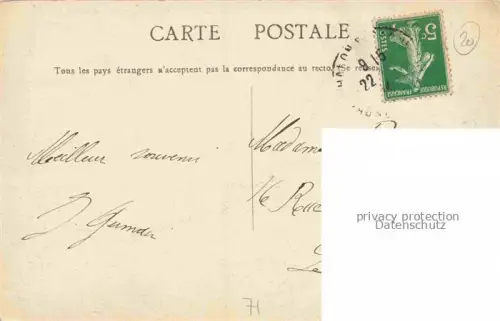 CARTE POSTALE
Tous les pays étrangers n'acceptent pas la correspondance au recto. (Se rensei
5c
POSTES
REPUBLIQUE FRANÇAISE
8 15
22
20
Meilleur souvenir
Madame
16 Rue
Le
privacy protection
Datenschutz
71